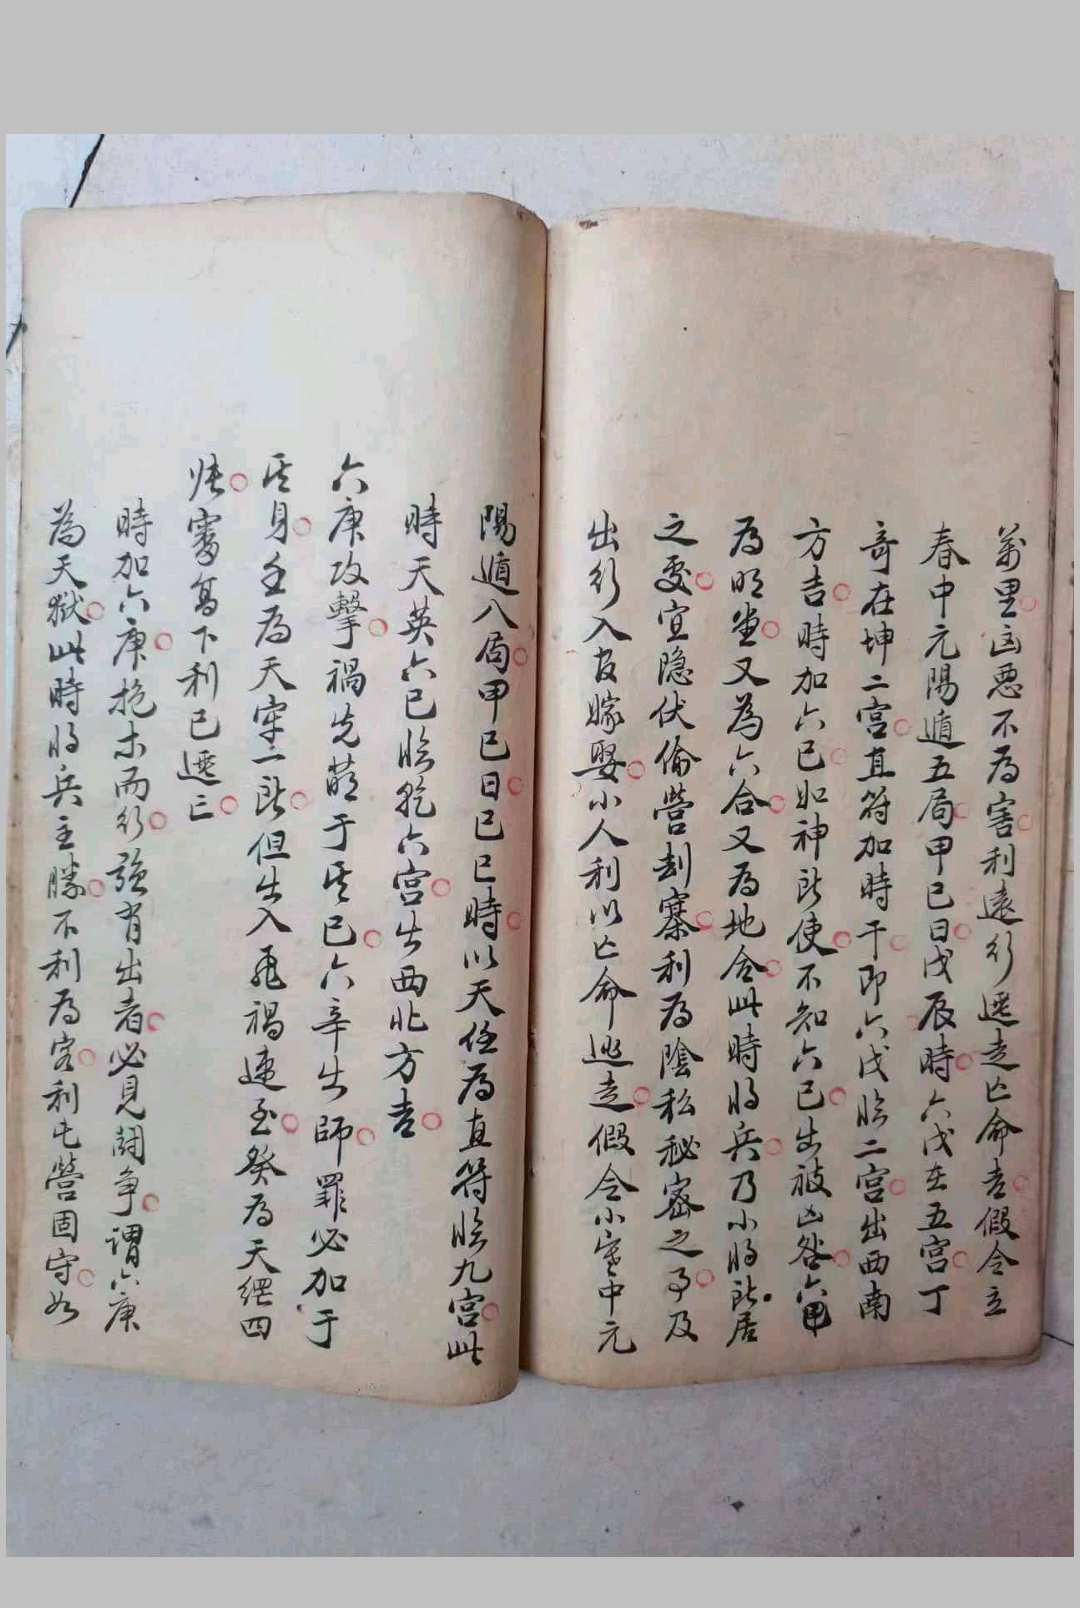 萬里凶惡不為害利遠行逃走亡命吉假令立
春中元陽遁五局甲己日戊辰時六戊在五宮丁
奇在坤二宮直符加時干即六戊臨二宮出西南
方吉時加六己如神所使不知六己出被凶咎六甲
為明堂又為六合又為地合此時將兵乃小將所居
之處宜隐伏偷營刦寨利為陰私秘密之事及
出行入官嫁娶小人利以亡命逃走假令小寒中元
陽遁八局甲己日己巳時以天任為直符臨九宮此
時天英六己臨乾六宮出西北方吉
六庚攻擊禍先萌于其己六辛出師罪必加于
其身壬為天牢二所但出入飛禍連至癸為天網四
張寡高下利己逃亡
時加六庚抱木而行強有出者必見鬪爭謂六庚
為天獄此時將兵主勝不利為客利屯營固守如